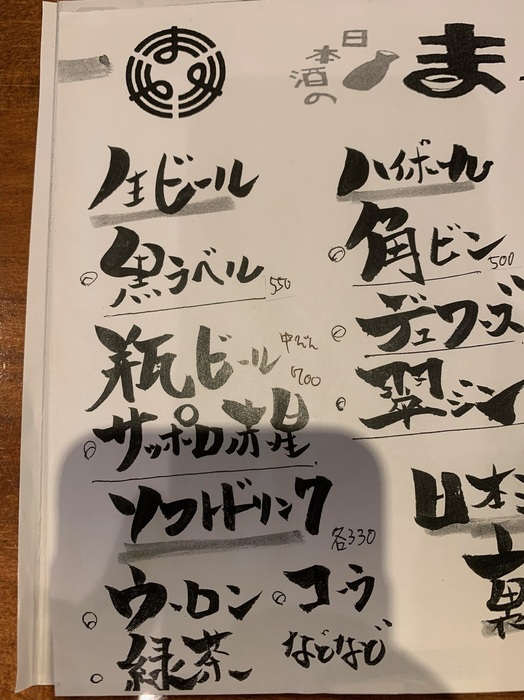 日本酒の
ま
生ビール
黒ラベル 550
瓶ビール 中びん 700
サッポロ赤星
ソフトドリンク 各330
ウーロン
コーラ
緑茶
などなど
ハイボール
角ビン 500
デュワーズ
翠ジン
日本
裏